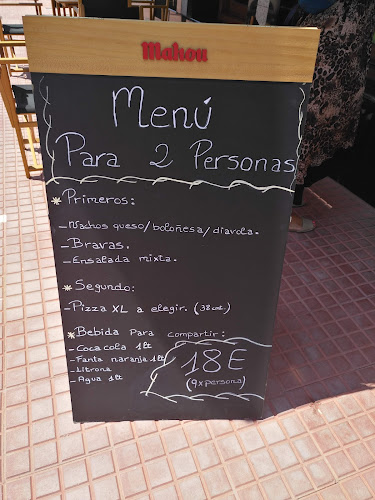 Mahou
Menú
Para 2 Personas
*Primeros:
-Nachos queso/boloñesa/diavola.
-Bravas.
-Ensalada mixta.
*Segundo:
-Pizza XL a elegir. (38cmt.)
*Bebida Para compartir:
-Coca cola 1lt
-Fanta naranja 1lt
-Litrona
-Agua 1lt
18E
(9xpersona)